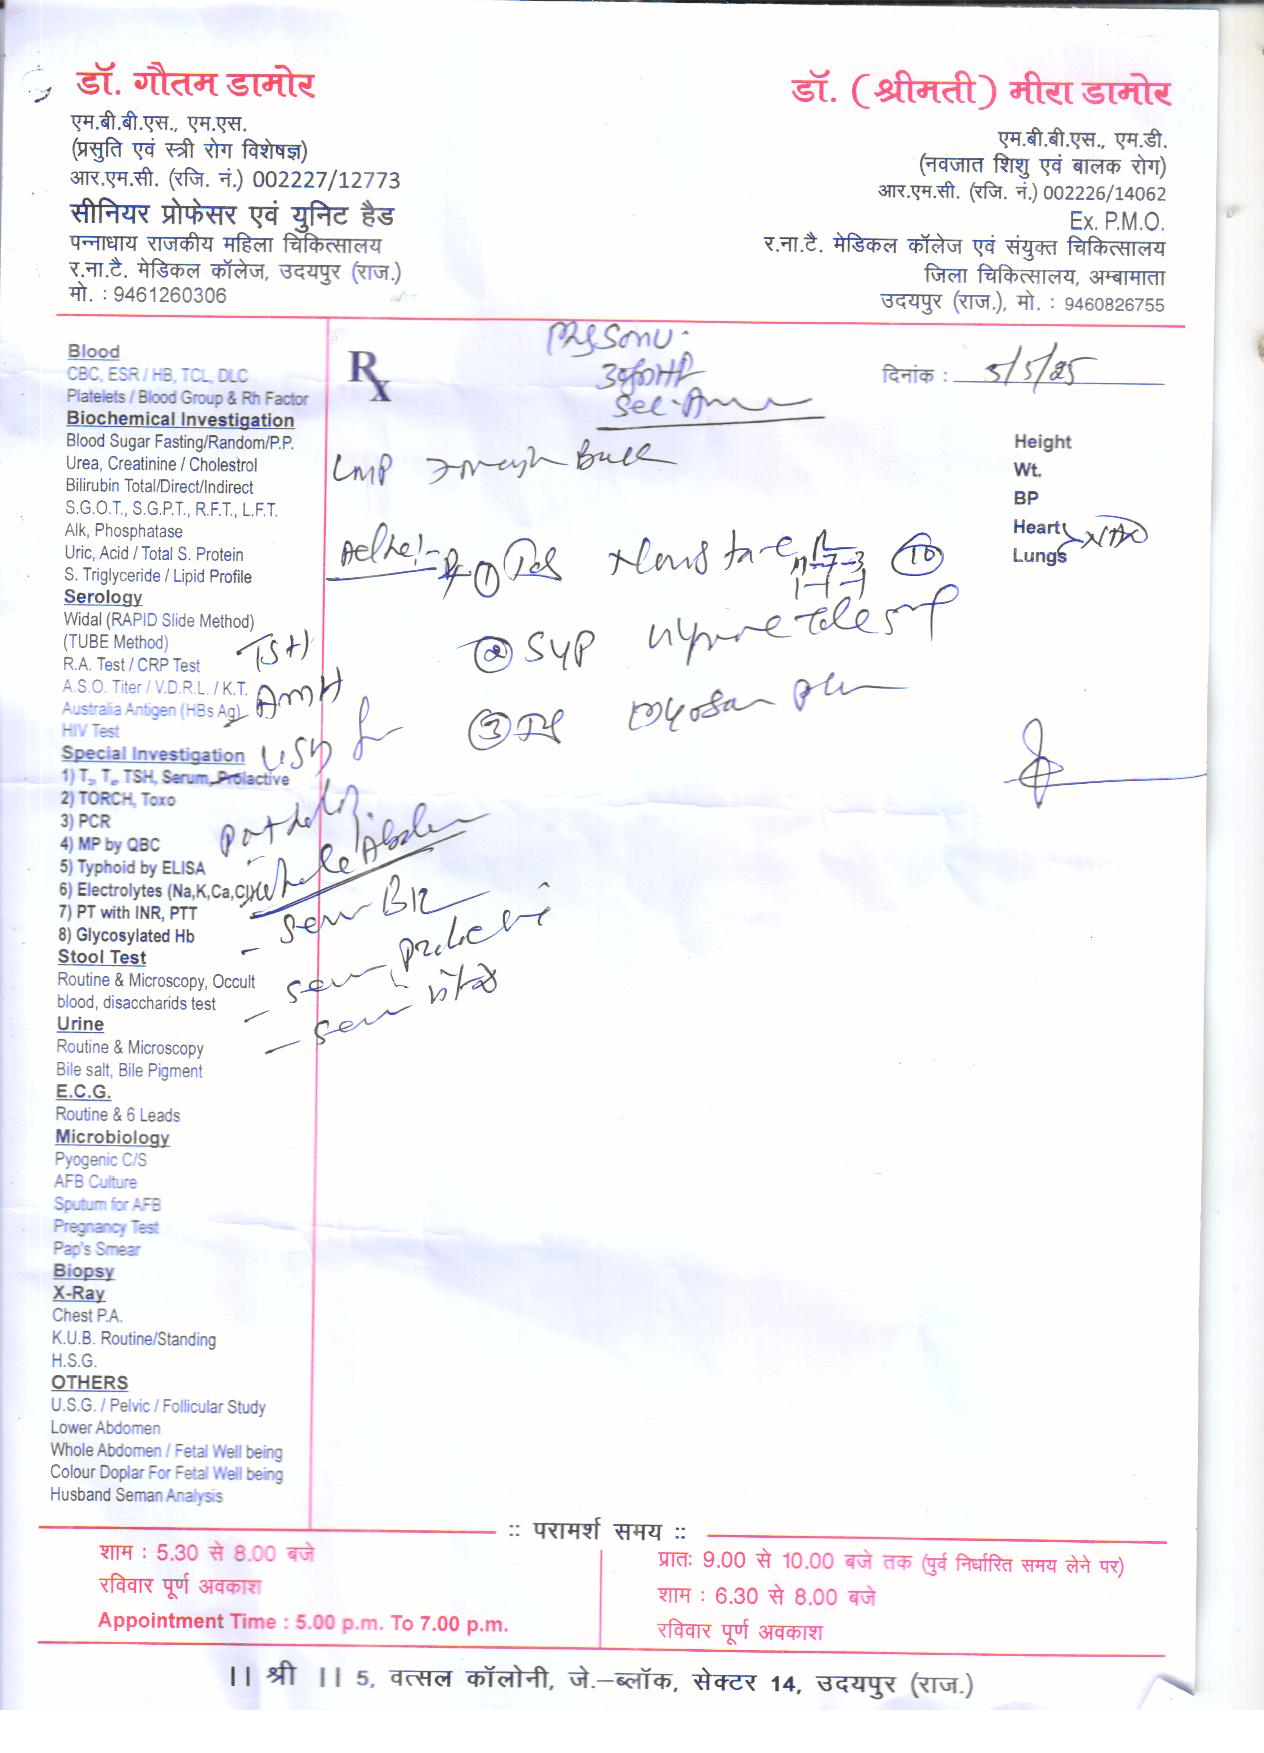 डॉ. गौतम डामोर
एम.बी.बी.एस., एम.एस.
(प्रसुति एवं स्त्री रोग विशेषज्ञ)
आर.एम.सी. (रजि. नं.) 002227/12773
सीनियर प्रोफेसर एवं युनिट हैड
पन्नाधाय राजकीय महिला चिकित्सालय
र.ना.टै. मेडिकल कॉलेज, उदयपुर (राज.)
मो. : 9461260306
डॉ. (श्रीमती) मीरा डामोर
एम.बी.बी.एस., एम.डी.
(नवजात शिशु एवं बालक रोग)
आर.एम.सी. (रजि. नं.) 002226/14062
Ex. P.M.O.
र.ना.टै. मेडिकल कॉलेज एवं संयुक्त चिकित्सालय
जिला चिकित्सालय, अम्बामाता
उदयपुर (राज.), मो. : 9460826755
Blood
CBC, ESR / HB, TCL, DLC
Platelets / Blood Group & Rh Factor
Biochemical Investigation
Blood Sugar Fasting/Random/P.P.
Urea, Creatinine / Cholestrol
Bilirubin Total/Direct/Indirect
S.G.O.T., S.G.P.T., R.F.T., L.F.T.
Alk, Phosphatase
Uric, Acid / Total S. Protein
S. Triglyceride / Lipid Profile
Serology
Widal (RAPID Slide Method)
(TUBE Method)
R.A. Test / CRP Test
A.S.O. Titer / V.D.R.L. / K.T.
Australia Antigen (HBs Ag)
HIV Test
Special Investigation
1) T3, T4, TSH, Serum, Prolactive
2) TORCH, Toxo
3) PCR
4) MP by QBC
5) Typhoid by ELISA
6) Electrolytes (Na,K,Ca,Cl)
7) PT with INR, PTT
8) Glycosylated Hb
Stool Test
Routine & Microscopy, Occult
blood, disaccharids test
Urine
Routine & Microscopy
Bile salt, Bile Pigment
E.C.G.
Routine & 6 Leads
Microbiology
Pyogenic C/S
AFB Culture
Sputum for AFB
Pregnancy Test
Pap's Smear
Biopsy
X-Ray
Chest P.A.
K.U.B. Routine/Standing
H.S.G.
OTHERS
U.S.G. / Pelvic / Follicular Study
Lower Abdomen
Whole Abdomen / Fetal Well being
Colour Doplar For Fetal Well being
Husband Seman Analysis
Rx
Sonu
दिनांक : 5/5/25
Height
Wt.
BP
Heart
Lungs
NAD
LMP Back
①
② SYP
③
TSH
AMH
USG
Whole Abdomen
- Serum B12
- Serum Prolactin
- Serum
:: परामर्श समय ::
शाम : 5.30 से 8.00 बजे
रविवार पूर्ण अवकाश
Appointment Time : 5.00 p.m. To 7.00 p.m.
प्रातः 9.00 से 10.00 बजे तक (पुर्व निर्धारित समय लेने पर)
शाम : 6.30 से 8.00 बजे
रविवार पूर्ण अवकाश
|| श्री || 5, वत्सल कॉलोनी, जे.–ब्लॉक, सेक्टर 14, उदयपुर (राज.)